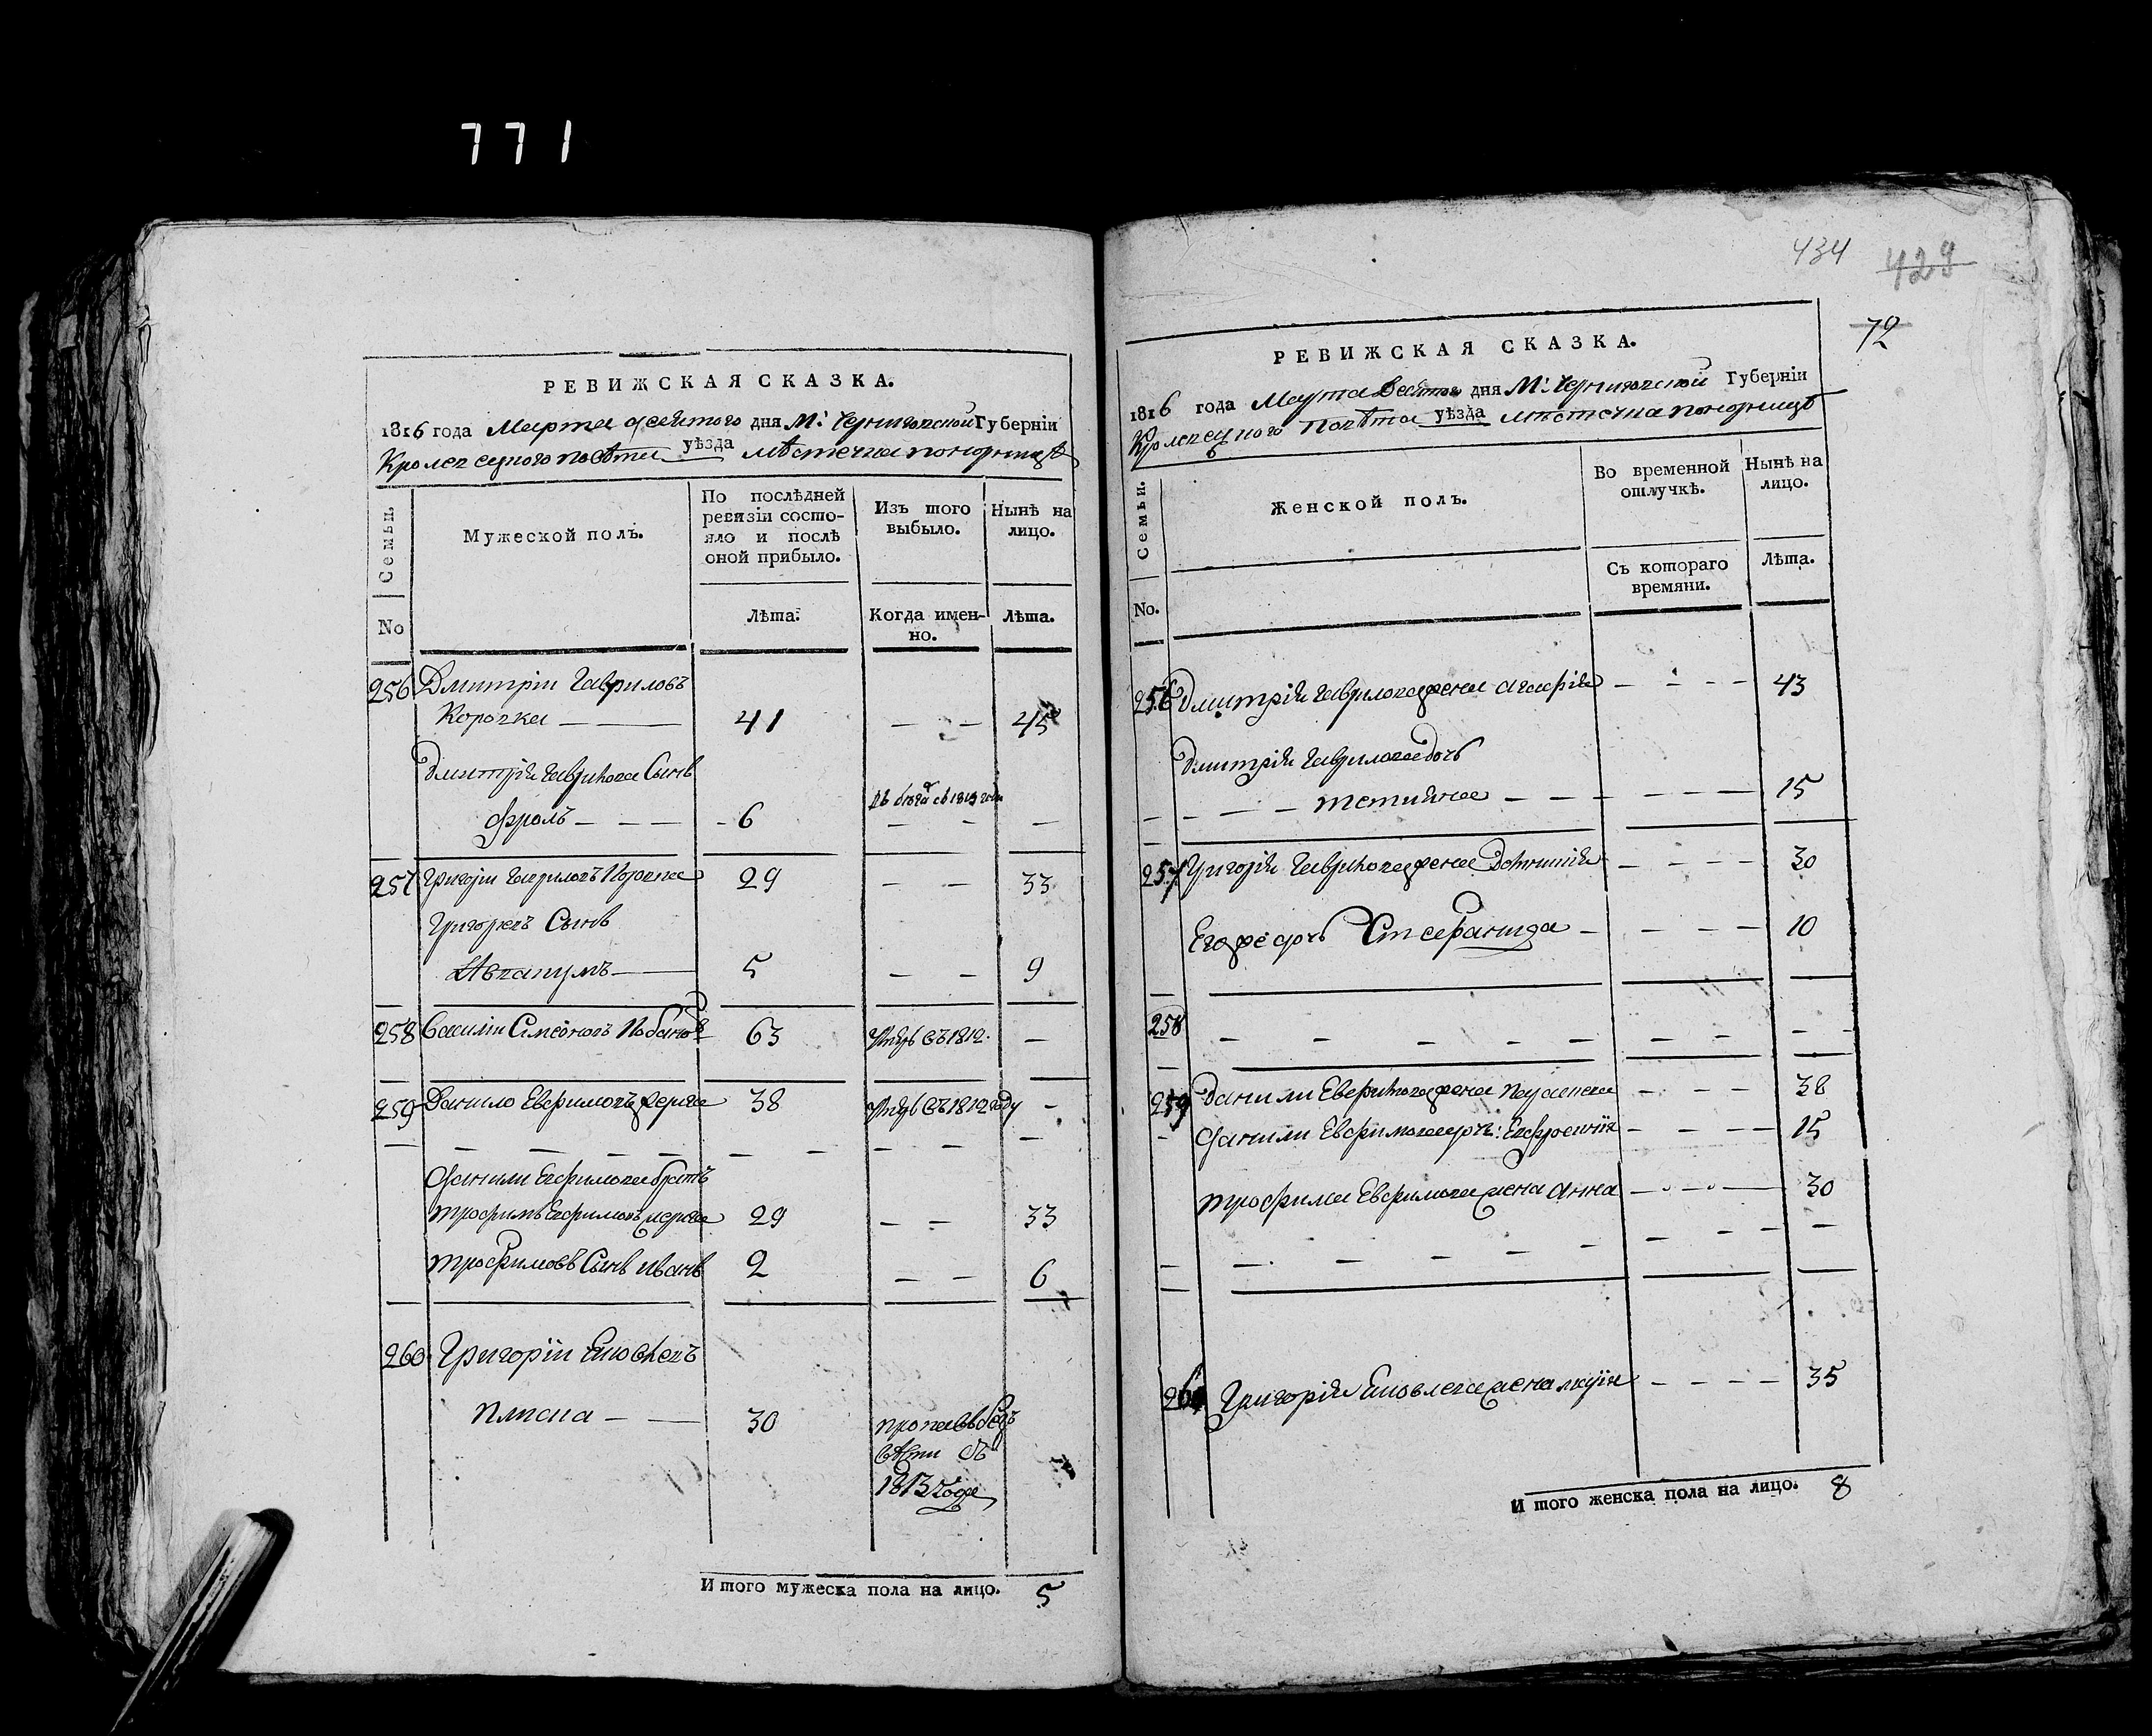 771
РЕВИЖСКАЯ СКАЗКА.
1816 года Марта десятого дня М: Черниговской Губерніи
Кролевецкого повѣта уѣзда мѣстечка понорницѣ
Семьи.
No
Мужеской полъ.
По послѣдней
ревизіи состо-
яло и послѣ
оной прибыло.
Лѣта.
Изъ того
выбыло.
Когда имен-
но.
Нынѣ на
лицо.
Лѣта.
256 Дмитріи Гавриловъ
Корочка — — 41 — — 45
Дмитрія Гаврилова Сынъ
Фролъ — — — 6 въ бѣгахъ съ 1813 года —
257 Григоріи Гавриловъ 29 — — 33
Григоревъ Сынъ
5 — — 9
258 Василіи Симеоновъ 63 съ 1812. —
259 Данило Евфимовъ 38 съ 1812 году —
Данили Евфимова братъ
Трофимъ Евфимовъ 29 — — 33
Трофимовъ Сынъ Иванъ 2 — — 6
260 Григоріи
30 пропалъ безъ
вѣсти съ
1813 года
И того мужеска пола на лицо. 5
434 429
72
РЕВИЖСКАЯ СКАЗКА.
1816 года Марта Десятого дня М: Черниговской Губерніи
Кролевецкого Повѣта уѣзда мѣстечка понорницѣ
Семьи.
No.
Женской полъ.
Во временной
отлучкѣ.
Съ котораго
времяни.
Нынѣ на
лицо.
Лѣта.
256 Дмитрія Гаврилова жена Агафія — — — 43
Дмитрія Гаврилова дочь
— — — Тетияна — — — 15
257 Григорія Гаврилова жена — — — 30
Его же дочь — — — 10
258 — — — — — — — — —
259 Данили Евфимова жена — — — 38
Данили Евфимова дочь: Евфросинія — — — 15
Трофима Евфимова жена Анна — — — 30
260 Григорія жена — — — 35
И того женска пола на лицо. 8